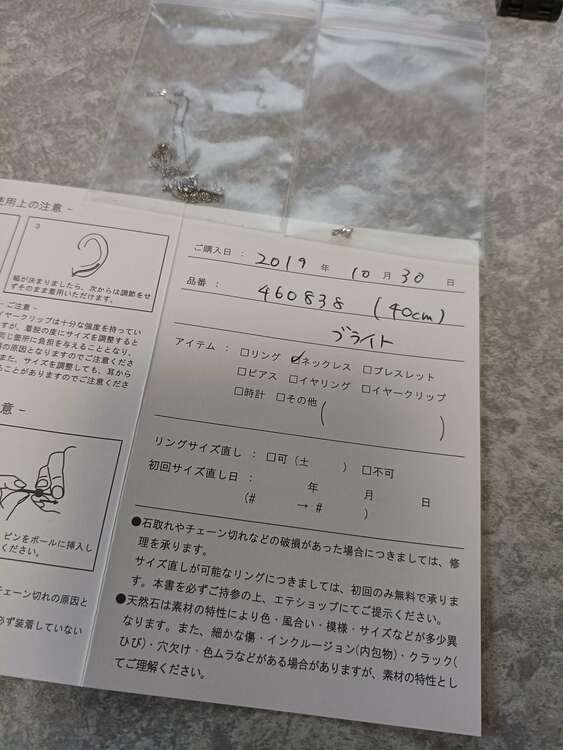 使用上の注意 -
3
幅が決まりましたら、次からは調節をせ
ずそのまま着用いただけます。
- ご注意 -
イヤークリップは十分な強度を持ってい
ますが、着脱の度にサイズを調整すると
同じ箇所に負担を与えることとなり、
の原因となりますのでご注意くださ
また、サイズを調整しても、耳から
ることがありますのでご注意くださ
意 -
ピンをボールに挿入し
ください。
チェーン切れの原因と
必ず装着していない
ご購入日： 2019 年 10 月 30 日
品番： 460838 (40cm)
ブライト
アイテム： □リング ☑ネックレス □ブレスレット
□ピアス □イヤリング □イヤークリップ
□時計 □その他 ( )
リングサイズ直し： □可 (± ) □不可
初回サイズ直し日： 年 月 日
(# → # )
●石取れやチェーン切れなどの破損があった場合につきましては、修
理を承ります。
サイズ直しが可能なリングにつきましては、初回のみ無料で承りま
す。本書を必ずご持参の上、エテショップにてご提示ください。
●天然石は素材の特性により色・風合い・模様・サイズなどが多少異
なります。また、細かな傷・インクルージョン(内包物)・クラック(
ひび)・穴欠け・色ムラなどがある場合がありますが、素材の特性とし
てご理解ください。